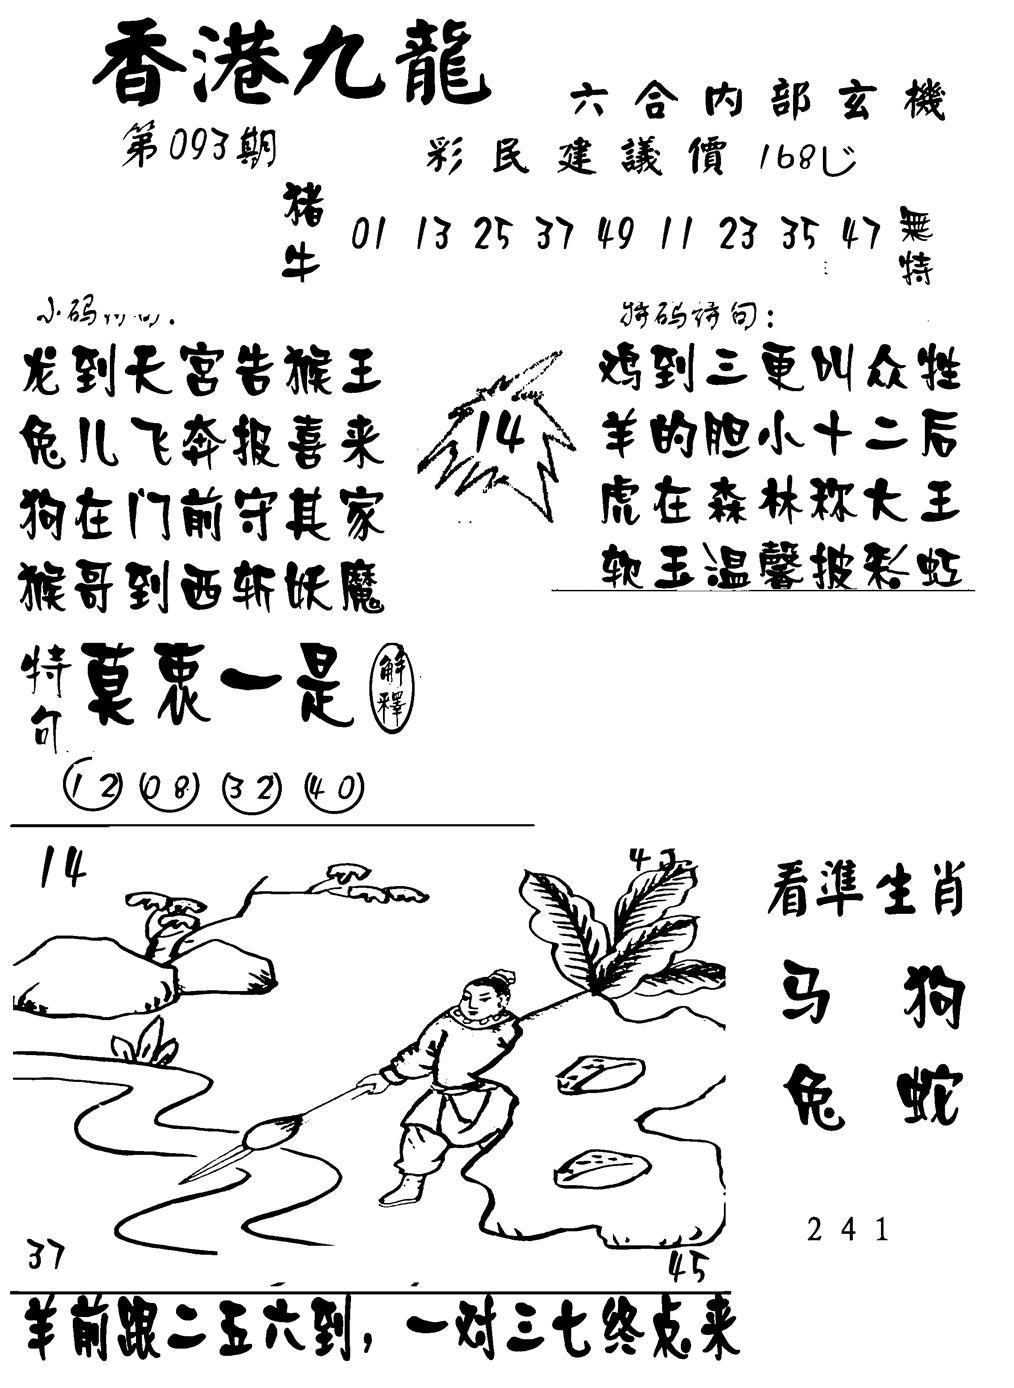 香港九龍
六合内部玄機
第093期
彩民建議價168
猪牛 01 13 25 37 49 11 23 35 47 無特
小码
龙到天宫告猴王
兔儿飞奔报喜来
狗在门前守其家
猴哥到西斩妖魔
14
特码诗句：
鸡到三更叫众牲
羊的胆小十二后
虎在森林称大王
软玉温馨披彩虹
特句 莫衷一是 解釋
12 08 32 40
14
看準生肖
马 狗
兔 蛇
241
37
45
羊前跟二五六到，一对三七终点来